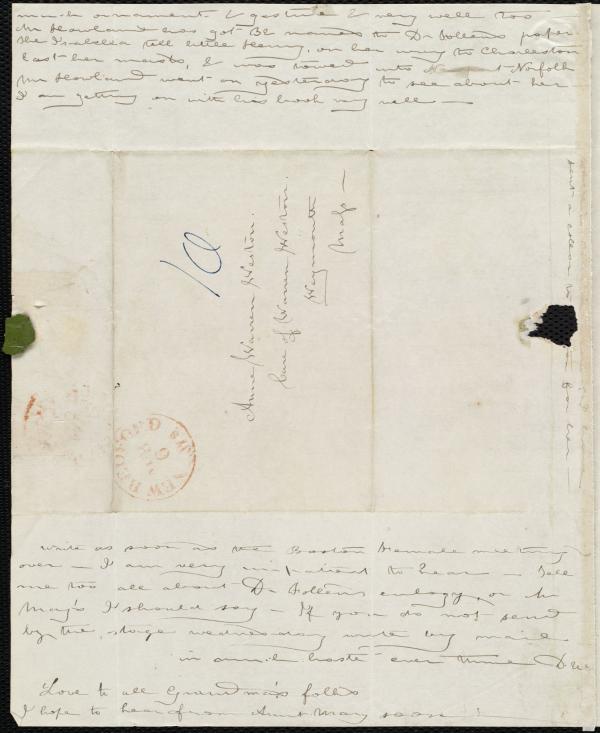 much ornament & gesture & very well too
Mr Howland has got 82 names to Dr Follens paper
The Isabella till little Henry, on her way to Charleston
lost her masts, & was towed into Norfolk
Mr Howland went on yesterday to see about her
I am getting on with his book very well —
sent a
her —
10
Anne Warren Weston.
Care of Warren Weston.
Weymouth
Mass —
NEW BEDFORD Ms
9
write as soon as the Boston Female meeting
over — I am very impatient to hear — Tell
me too all about Dr Follens eulogy, or Mr
May's I should say — If you do not send
by the stage wednesday write by mail
in much haste ever thine D W
Love to all Grandma's folks
I hope to hear from Aunt Mary soon